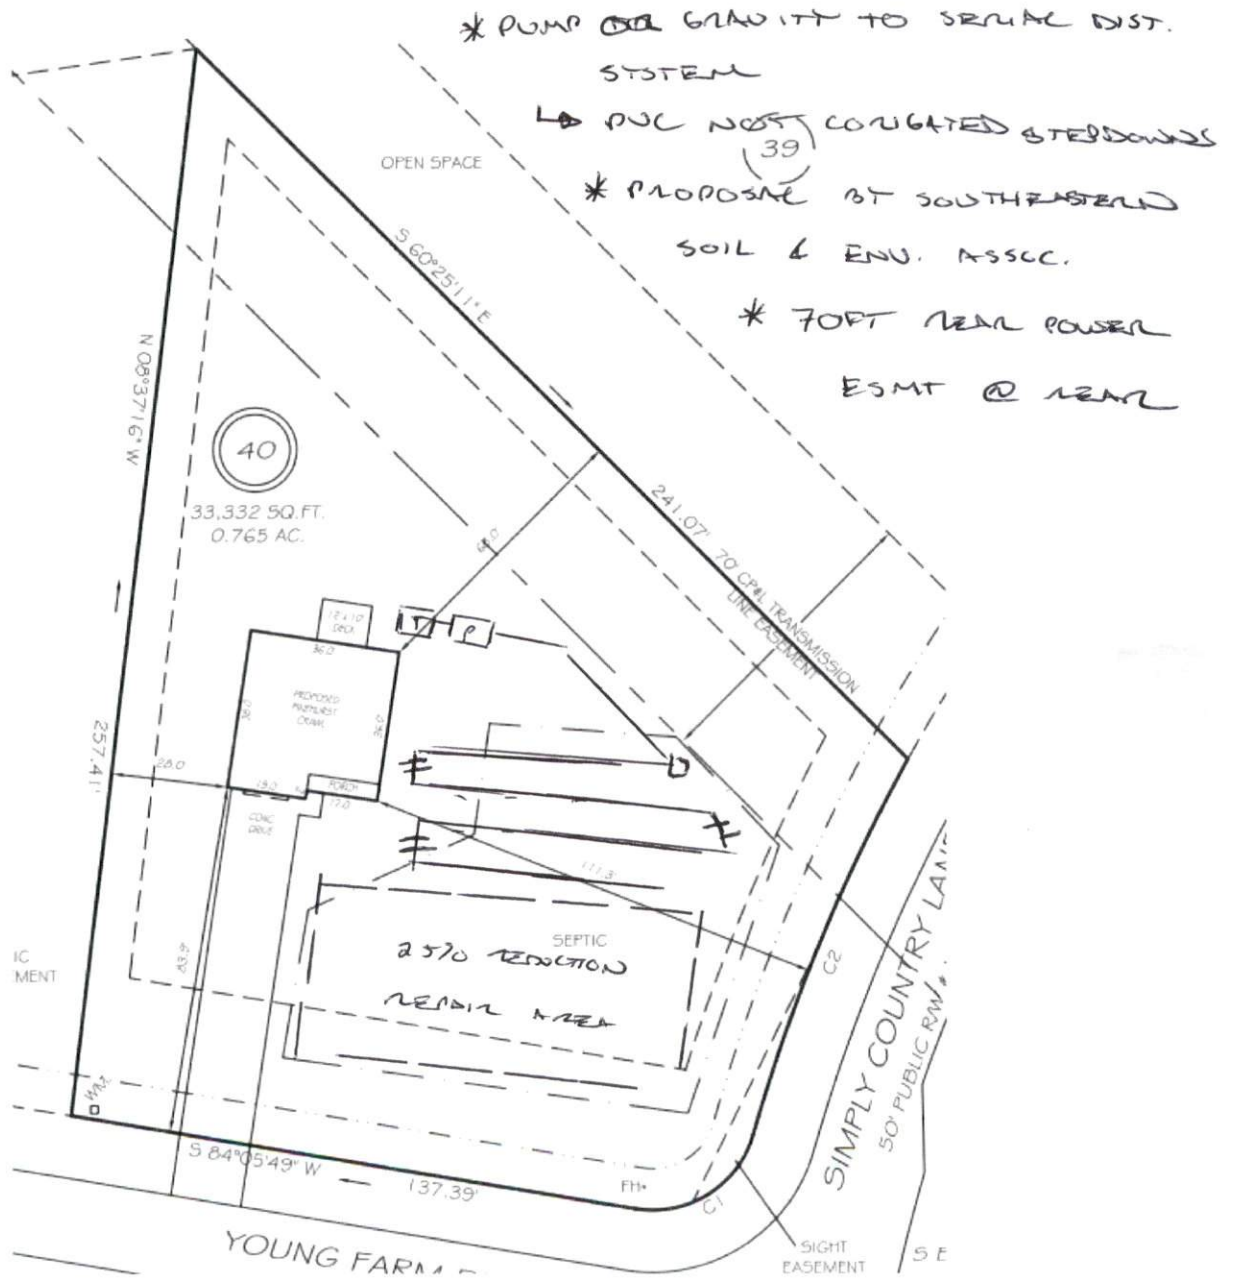 * PUMP OR GRAVITY TO SERIAL DIST.
SYSTEM
↳ PVC NOT CORIGATED STEPDOWNS
39
OPEN SPACE
* PROPOSAL BY SOUTHEASTERN
SOIL & ENV. ASSOC.
* 70FT REAR POWER
ESMT @ REAR
S 60°25'11" E
N 08°37'16" W
40
33,332 SQ.FT.
0.765 AC.
241.07'
70' CP&L TRANSMISSION
LINE EASEMENT
12 x 10
DECK
T
P
36.0
PROPOSED
CRAWL
257.41'
28.0
19.0
PORCH
17.0
CONC
DRIVE
D
111.3'
SEPTIC
25% REDUCTION
REPAIR AREA
IC
MENT
C2
SIMPLY COUNTRY LANE
50' PUBLIC R/W
S 84°05'49" W
137.39'
FH
C1
YOUNG FARM
SIGHT
EASEMENT
S E